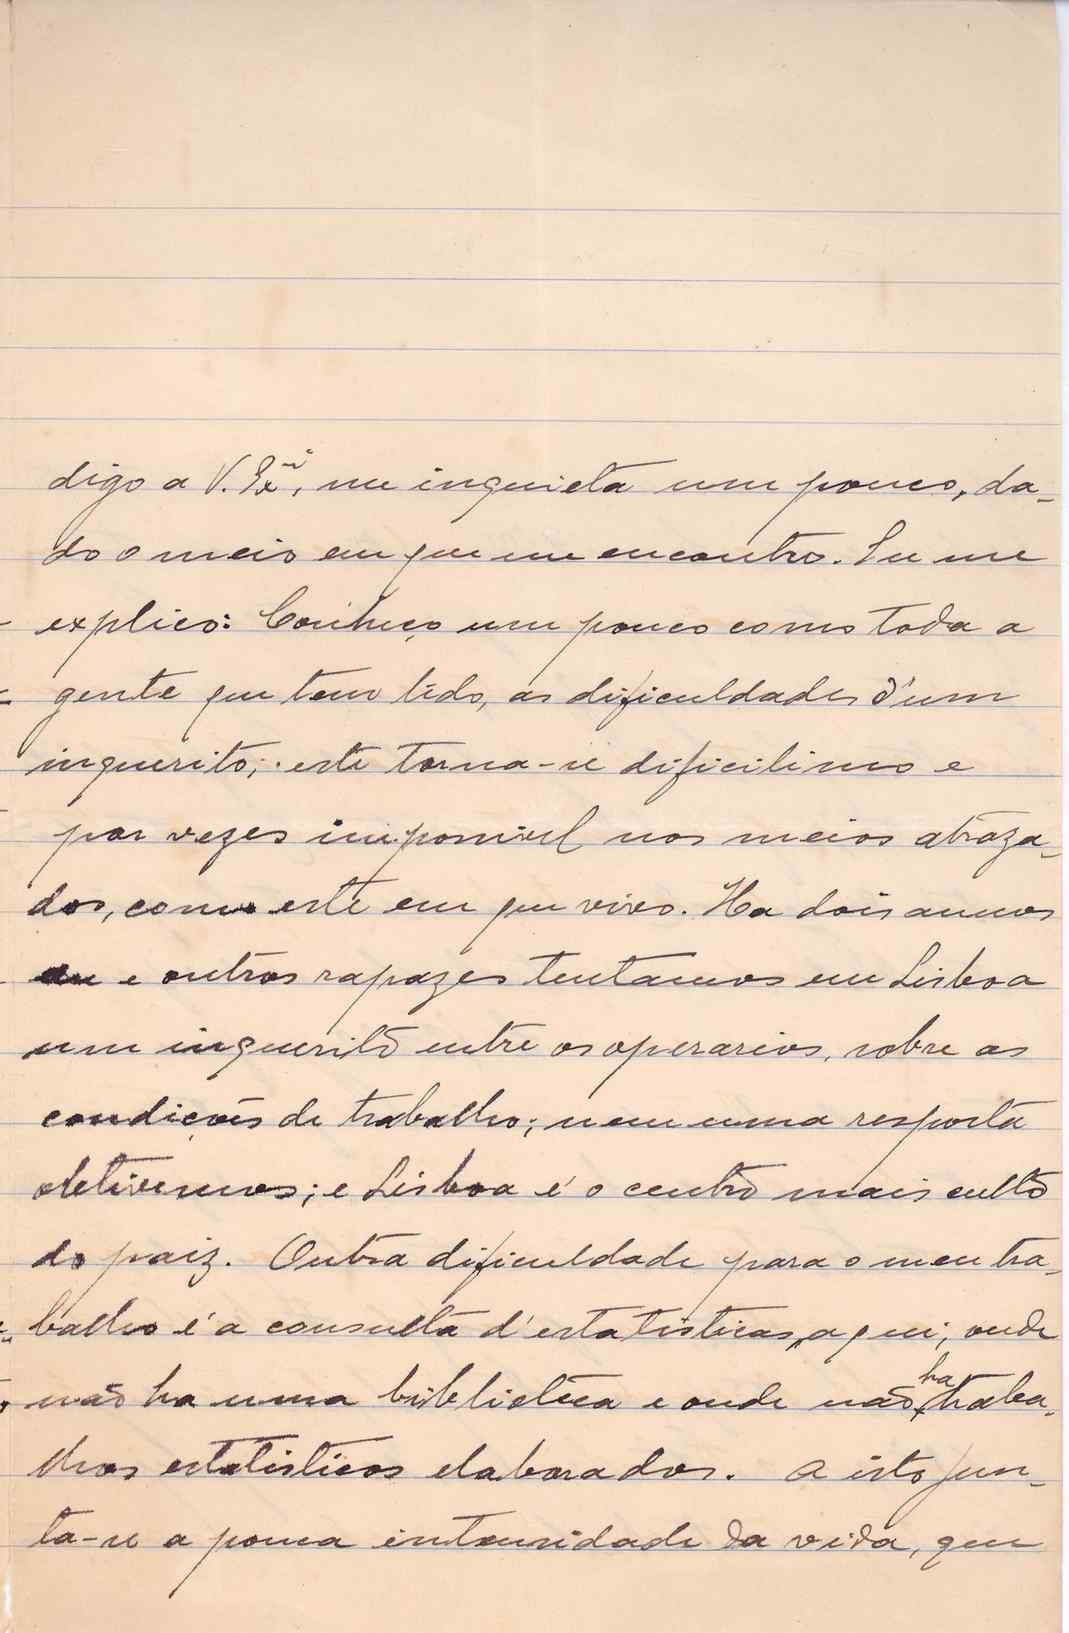 digo a V. Ex.ª, me inquieta um pouco, da-
do o meio em que me encontro. Eu me
explico: Conheço um pouco como toda a
gente que tem lido, as dificuldades d'um
inquerito; este torna-se dificilimo e
por vezes impossivel nos meios atraza-
dos, como este em que vivo. Ha dois annos
eu e outros rapazes tentamos em Lisboa
um inquerito entre os operarios, sobre as
condições de trabalho; nem uma resposta
obtivemos; e Lisboa é o centro mais culto
do paiz. Outra dificuldade para o meu tra-
balho é a consulta d'estatisticas, aqui, onde
não ha uma biblioteca e onde não ha traba-
lhos estatisticos elaborados. A isto jun-
ta-se a pouca intensidade da vida, que